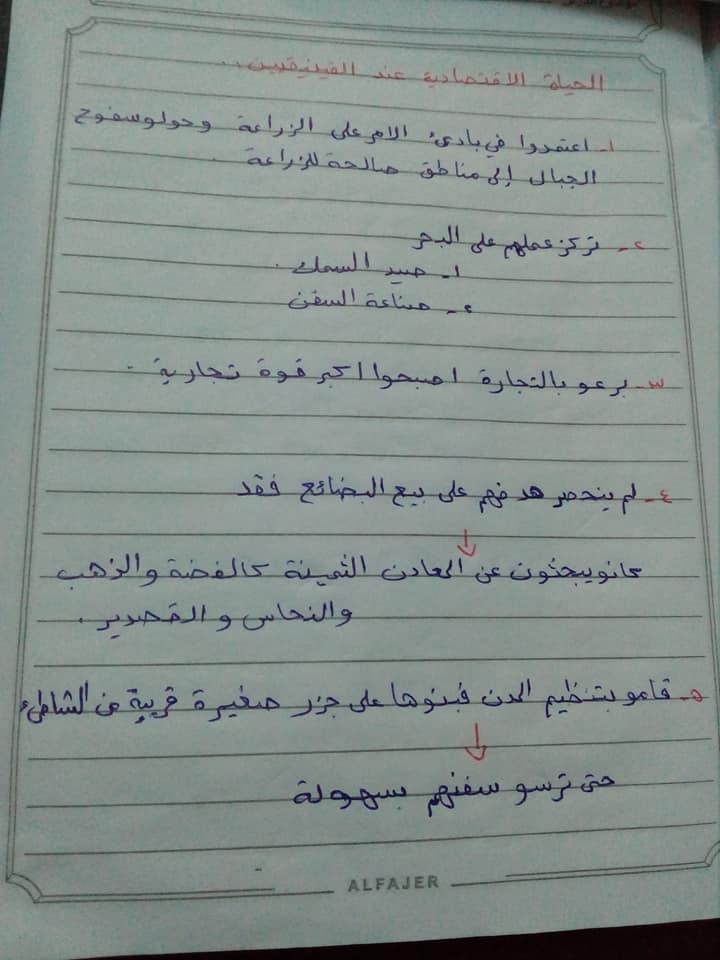 الحياة الاقتصادية عند الفينيقيين..
١- اعتمدوا في بادئ الامر على الزراعة وحولو سفوح
الجبال إلى مناطق صالحة للزراعة.
٢- تركز عملهم على البحر
١- صيد السمك.
٢- صناعة السفن
٣- برعو بالتجارة اصبحوا اكبر قوة تجارية.
٤- لم ينحصر هدفهم على بيع البضائع فقد
↓
كانو يبحثون عن المعادن الثمينة كالفضة والذهب
والنحاس والقصدير.
٥- قامو بتنظيم المدن فبنوها على جزر صغيرة قريبة من الشاطئ
↓
حتى ترسو سفنهم بسهولة
ALFAJER